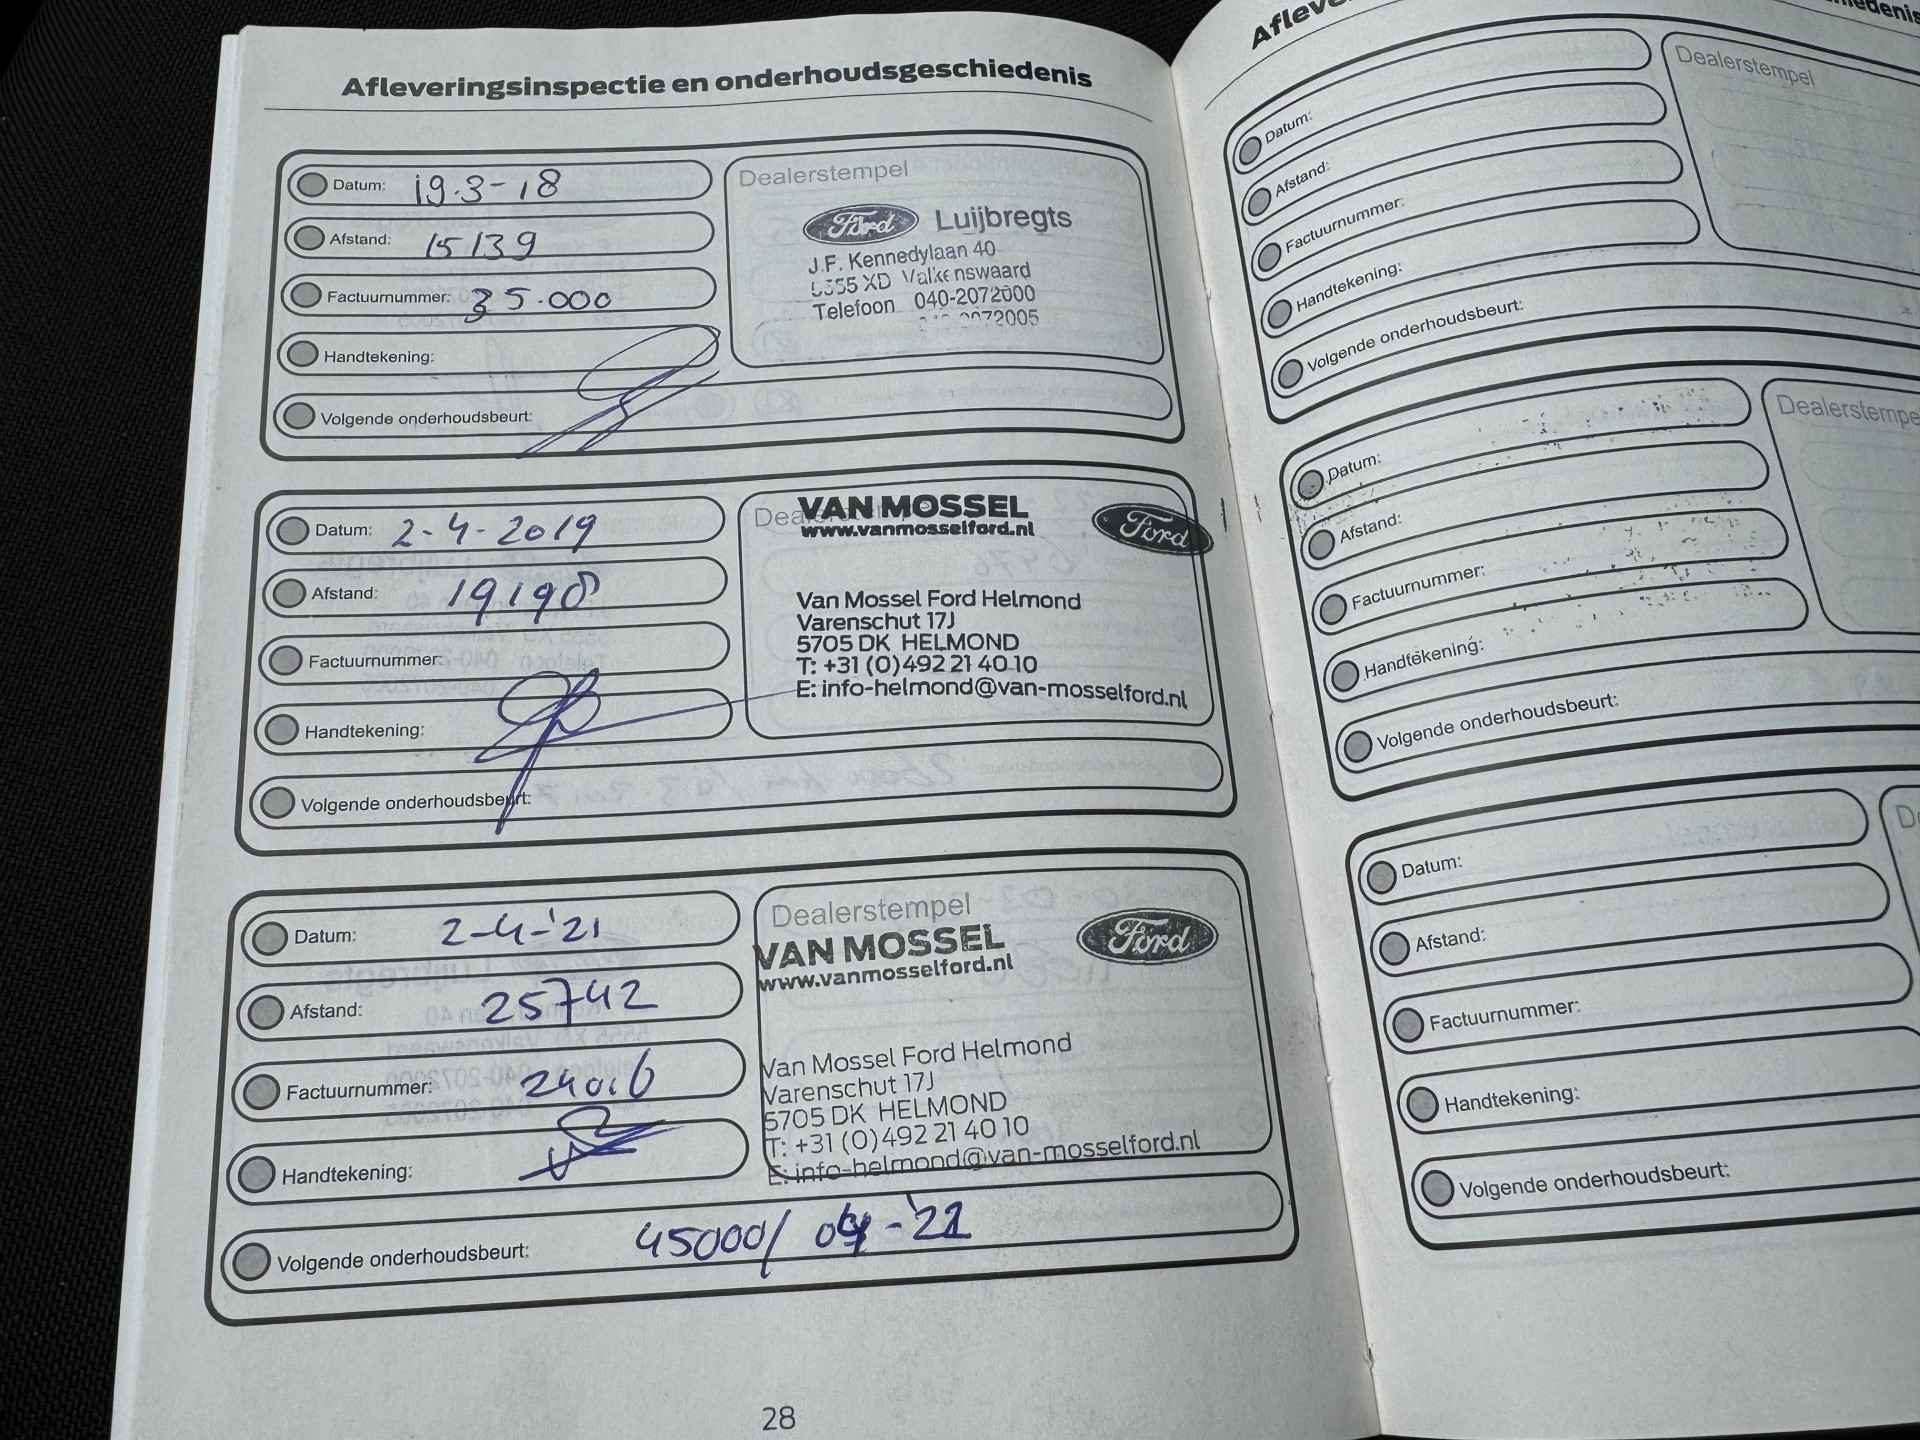 Afleveringsinspectie en onderhoudsgeschiedenis
Datum: 19.3-18
Afstand: 15139
Factuurnummer: 35.000
Handtekening:
Volgende onderhoudsbeurt:
Dealerstempel
Ford Luijbregts
J.F. Kennedylaan 40
5555 XD Valkenswaard
Telefoon 040-2072000
040-2072005
Datum: 2-4-2019
Afstand: 19198
Factuurnummer:
Handtekening:
Volgende onderhoudsbeurt:
VAN MOSSEL
www.vanmosselford.nl
Ford
Van Mossel Ford Helmond
Varenschut 17J
5705 DK HELMOND
T: +31 (0)492 21 40 10
E: info-helmond@van-mosselford.nl
Datum: 2-4-'21
Afstand: 25742
Factuurnummer: 24016
Handtekening:
Volgende onderhoudsbeurt: 45000/ 04-'22
Dealerstempel
VAN MOSSEL
www.vanmosselford.nl
Ford
Van Mossel Ford Helmond
Varenschut 17J
5705 DK HELMOND
T: +31 (0)492 21 40 10
E: info-helmond@van-mosselford.nl
28
Datum:
Afstand:
Factuurnummer:
Handtekening:
Volgende onderhoudsbeurt:
Dealerstempel
Datum:
Afstand:
Factuurnummer:
Handtekening:
Volgende onderhoudsbeurt:
Dealerstempe
Datum:
Afstand:
Factuurnummer:
Handtekening:
Volgende onderhoudsbeurt: